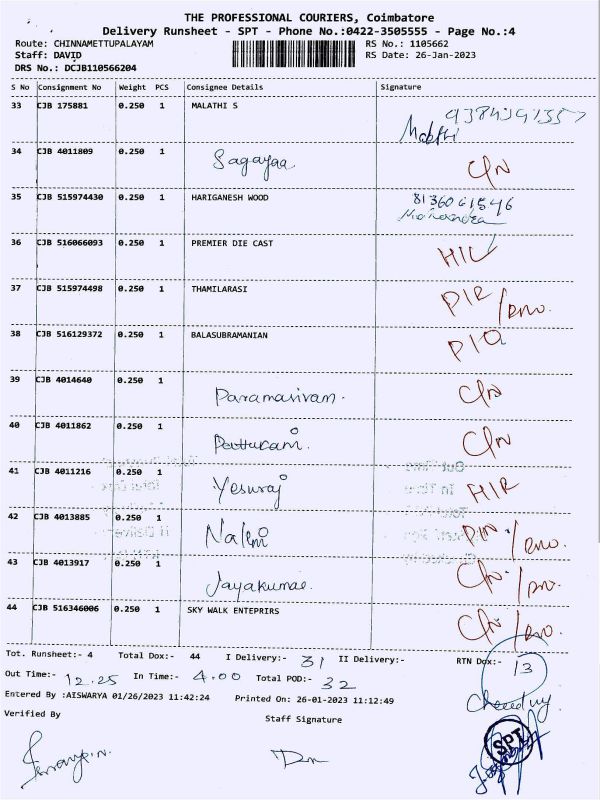 THE PROFESSIONAL COURIERS, Coimbatore
Delivery Runsheet - SPT - Phone No.:0422-3505555 - Page No.:4
Route: CHINNAMETTUPALAYAM RS No.: 1105662
Staff: DAVID RS Date: 26-Jan-2023
DRS No.: DCJB110566204
S No Consignment No Weight PCS Consignee Details Signature
33 CJB 175881 0.250 1 MALATHI S
Malathi
34 CJB 4011809 0.250 1 Sagayaa C/N
35 CJB 515974430 0.250 1 HARIGANESH WOOD 8136061546
36 CJB 516066093 0.250 1 PREMIER DIE CAST
37 CJB 515974498 0.250 1 THAMILARASI
38 CJB 516129372 0.250 1 BALASUBRAMANIAN
39 CJB 4014640 0.250 1 Paramasivam. C/N
40 CJB 4011862 0.250 1 C/N
41 CJB 4011216 0.250 1 Yesuraj
42 CJB 4013885 0.250 1 Nalini
43 CJB 4013917 0.250 1 Jayakumar
44 CJB 516346006 0.250 1 SKY WALK ENTEPRIRS
Tot. Runsheet:- 4 Total Dox:- 44 I Delivery:- 31 II Delivery:- RTN Dox:- 13
Out Time:- 12.25 In Time:- 4.00 Total POD:- 32
Entered By :AISWARYA 01/26/2023 11:42:24 Printed On: 26-01-2023 11:12:49
Verified By Staff Signature
SPT